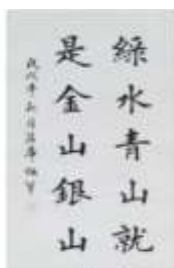 綠水青山就
是金山銀山